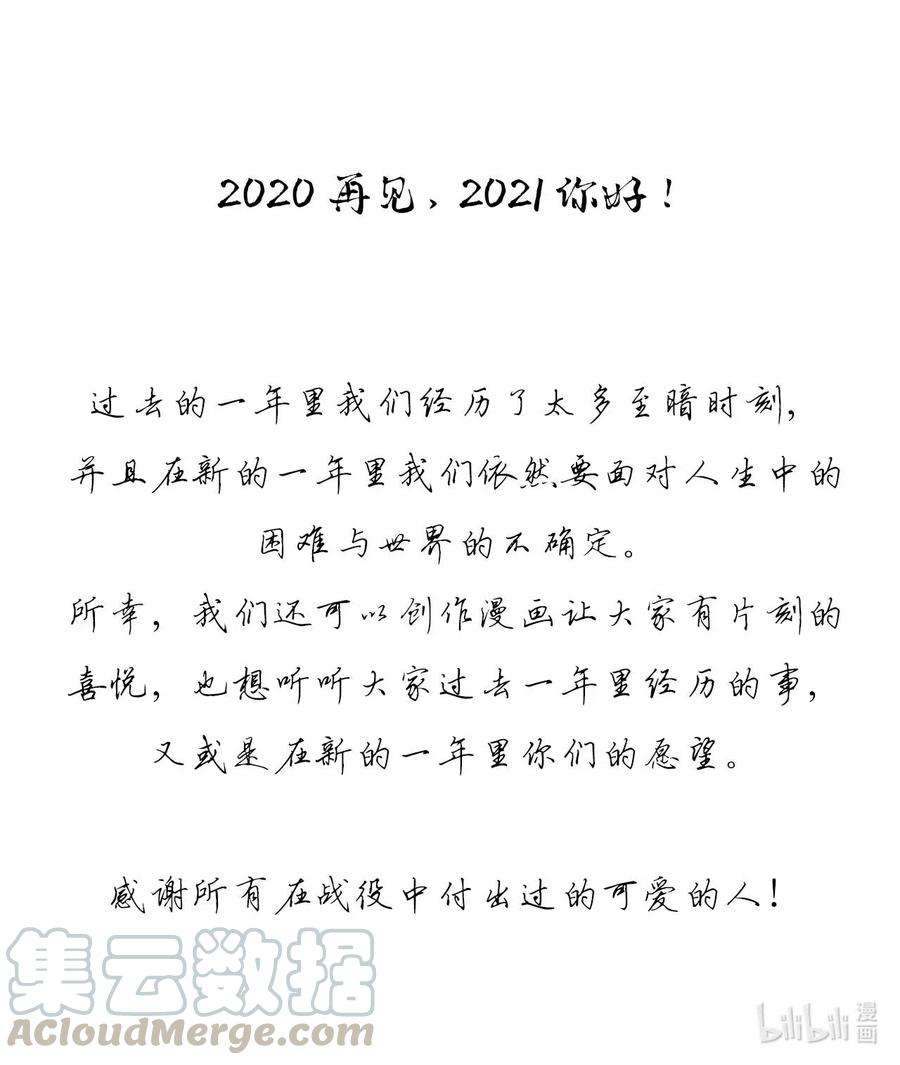 2020再见、2021你好！
过去的一年里我们经历了太多至暗时刻，
并且在新的一年里我们依然要面对人生中的
困难与世界的不确定。
所幸，我们还可以创作漫画让大家有片刻的
喜悦，也想听听大家过去一年里经历的事，
又或是在新的一年里你们的愿望。
感谢所有在战役中付出过的可爱的人！
集云数据
ACloudMerge.com
bilibili漫画